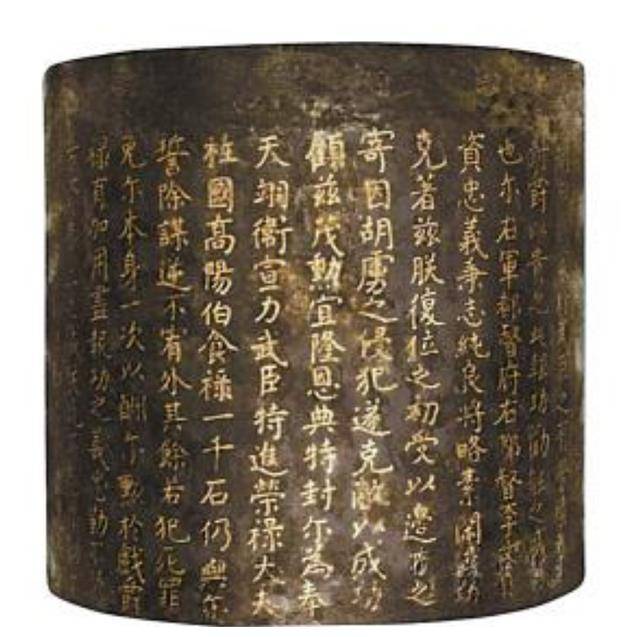 爵以答之此報功勸能之
也尔右軍都督府右都督李文
資忠義秉志純良將略素閑
克著茲朕復位之初受以邊方之
寄因胡虜之侵犯遂克敵以成功
顧茲茂勲宜隆恩典特封尔為奉
天翊衛宣力武臣特進榮祿大夫
柱國高陽伯食祿一千石仍與尔
誓除謀逆不宥外其餘若犯死罪
免尔本身一次以酬尔勲於戲爵
祿有加用盡報功之義忠勤